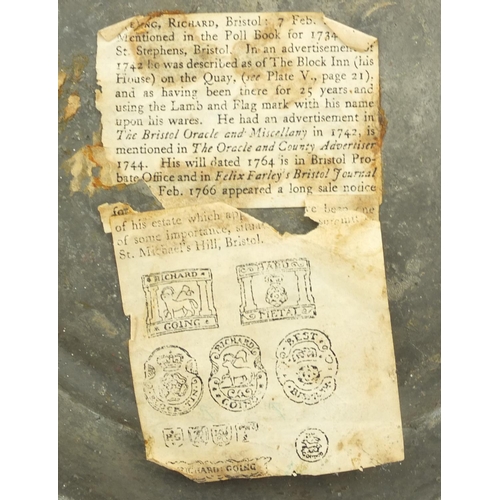 RICHARD, Bristol: 7 Feb.
Mentioned in the Poll Book for 1734
St. Stephens, Bristol. In an advertisement of
1742 he was described as of The Block Inn (his
House) on the Quay, (see Plate V., page 21).
and as having been there for 25 years and
using the Lamb and Flag mark with his name
upon his wares. He had an advertisement in
The Bristol Oracle and Miscellany in 1742, is
mentioned in The Oracle and County Advertiser
1744. His will dated 1764 is in Bristol Pro-
bate Office and in Felix Farley's Bristol Journal
Feb. 1766 appeared a long sale notice
of his estate which
of some importance,
St. Michael's Hill, Bristol.
RICHARD
GOING
HARD
METAL
RICHARD
GOING
BEST
RICHARD GOING